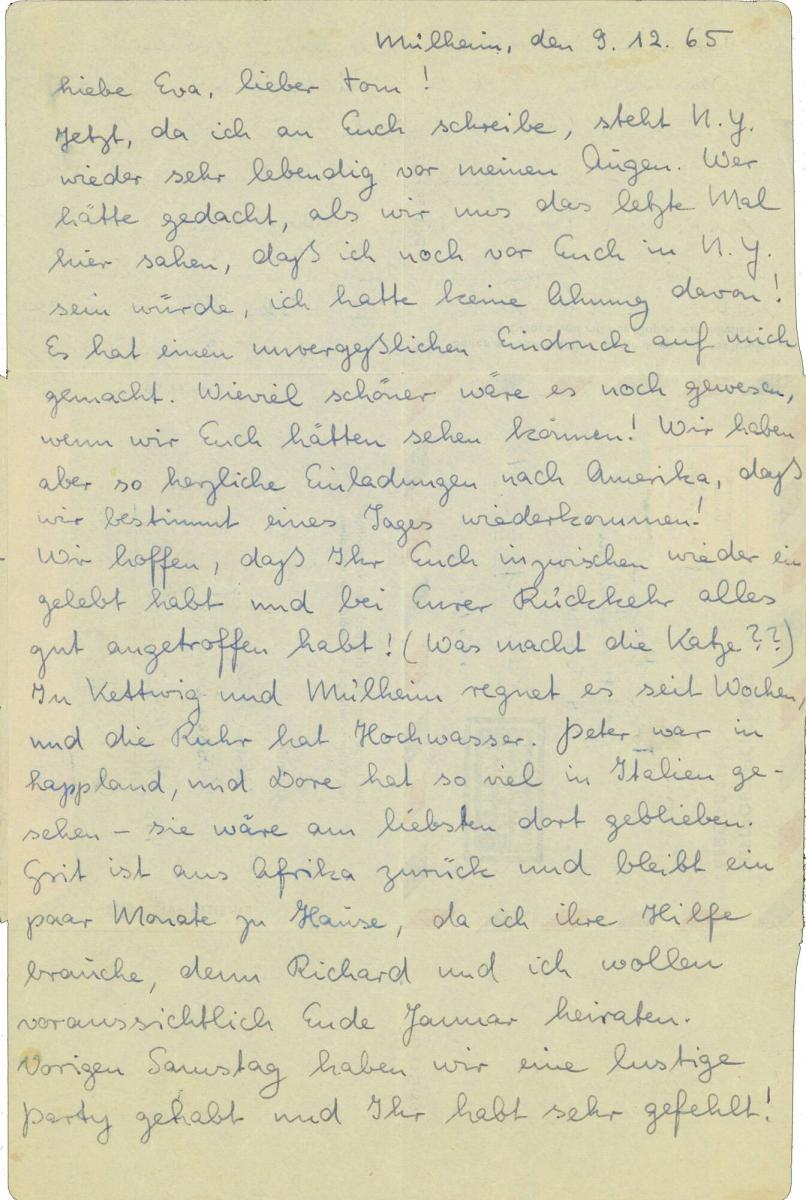 Mülheim, den 9. 12. 65
Liebe Eva, lieber Tom!
Jetzt, da ich an Euch schreibe, steht N.Y.
wieder sehr lebendig vor meinen Augen. Wer
hätte gedacht, als wir uns das letzte Mal
hier sahen, daß ich noch vor Euch in N.Y.
sein würde, ich hatte keine Ahnung davon!
Es hat einen unvergeßlichen Eindruck auf mich
gemacht. Wieviel schöner wäre es noch gewesen,
wenn wir Euch hätten sehen können! Wir haben
aber so herzliche Einladungen nach Amerika, daß
wir bestimmt eines Tages wiederkommen!
Wir hoffen, daß Ihr Euch inzwischen wieder ein
gelebt habt und bei Eurer Rückkehr alles
gut angetroffen habt! (Was macht die Katze??)
In Kettwig und Mülheim regnet es seit Wochen,
und die Ruhr hat Hochwasser. Peter war in
Lappland, und Dore hat so viel in Italien ge-
sehen – sie wäre am liebsten dort geblieben.
Grit ist aus Afrika zurück und bleibt ein
paar Monate zu Hause, da ich ihre Hilfe
brauche, denn Richard und ich wollen
voraussichtlich Ende Januar heiraten.
Vorigen Samstag haben wir eine lustige
Party gehabt und Ihr habt sehr gefehlt!